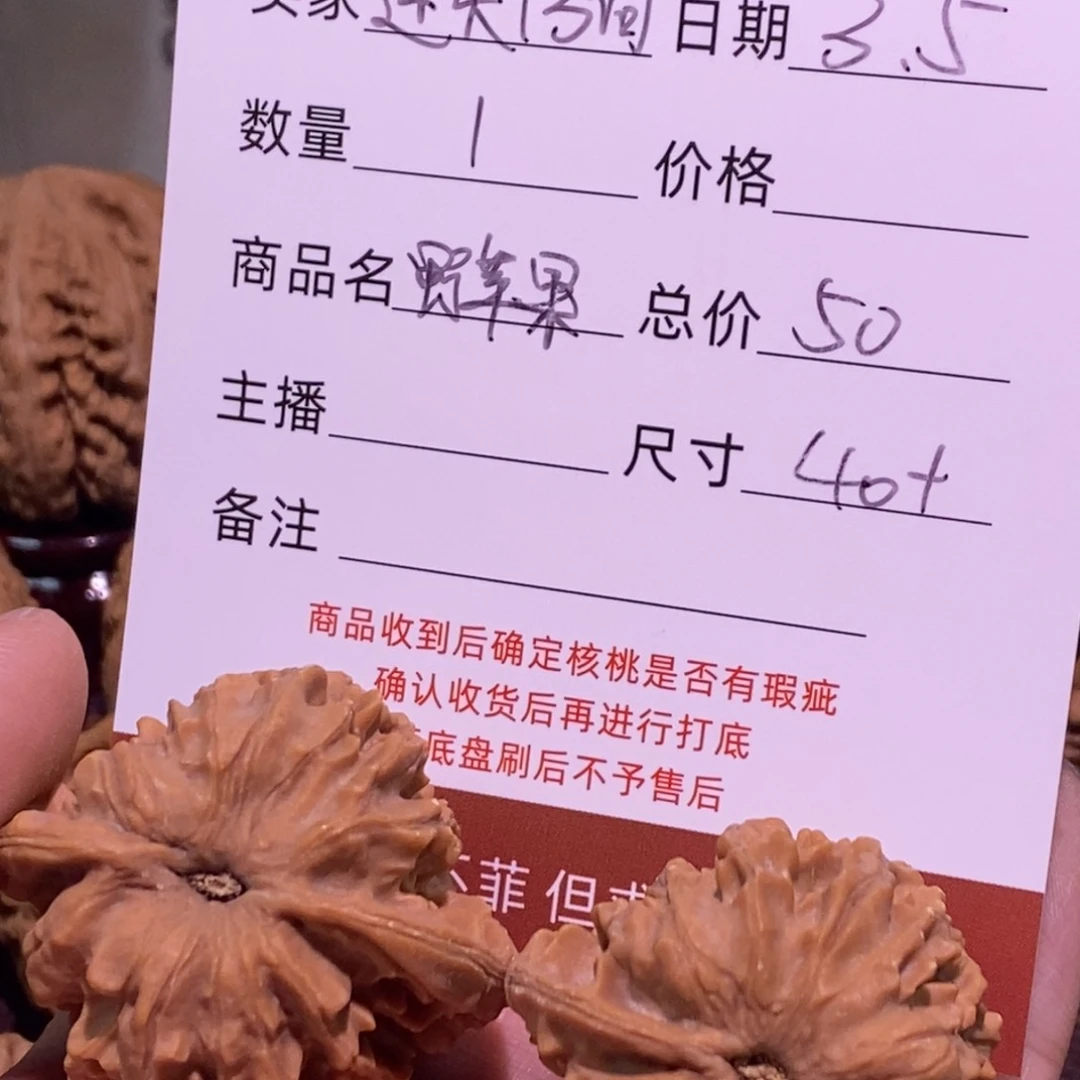 买家 日期 3.5
数量 1 价格
商品名 野苹果 总价 50
主播 尺寸 40+
备注
商品收到后确定核桃是否有瑕疵
确认收货后再进行打底
底盘刷后不予售后
菲 但求